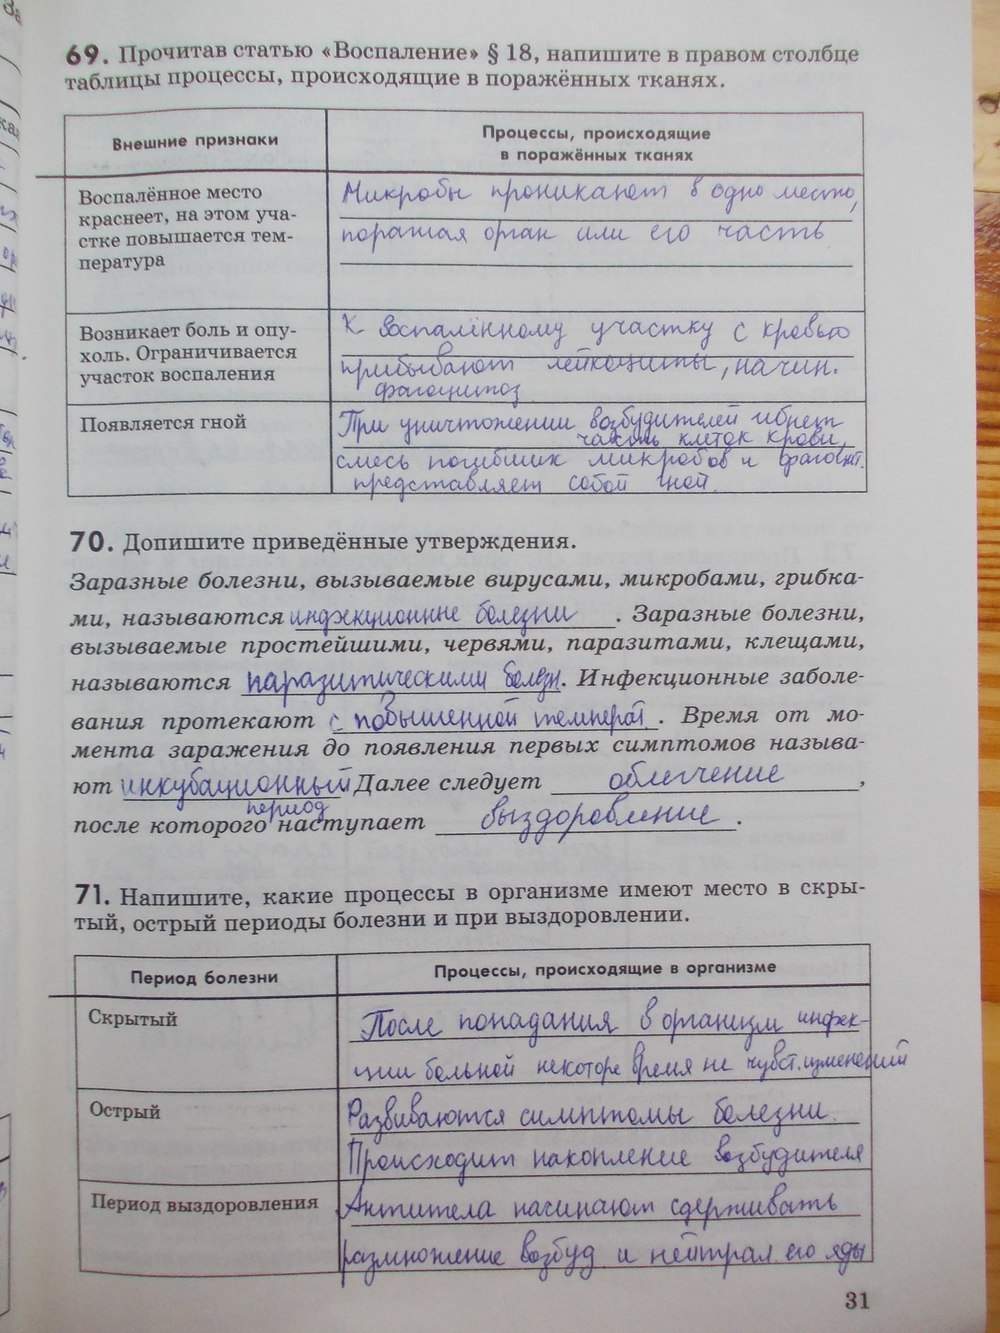 69. Прочитав статью «Воспаление» § 18, напишите в правом столбце
таблицы процессы, происходящие в поражённых тканях.
Внешние признаки
Процессы, происходящие
в поражённых тканях
Воспалённое место
краснеет, на этом уча-
стке повышается тем-
пература
Микробы проникают в одно место,
поражая орган или его часть
Возникает боль и опу-
холь. Ограничивается
участок воспаления
К воспалённому участку с кровью
прибывают лейкоциты, начин.
фагоцитоз
Появляется гной
При уничтожении возбудителей гибнет
часть клеток крови,
смесь погибших микробов и фагоцит.
представляет собой гной.
70. Допишите приведённые утверждения.
Заразные болезни, вызываемые вирусами, микробами, грибка-
ми, называются инфекционные болезни. Заразные болезни,
вызываемые простейшими, червями, паразитами, клещами,
называются паразитическими болезн. Инфекционные заболе-
вания протекают с повышенной температ. Время от мо-
мента заражения до появления первых симптомов называ-
ют инкубационный Далее следует облегчение,
период
после которого наступает выздоровление.
71. Напишите, какие процессы в организме имеют место в скры-
тый, острый периоды болезни и при выздоровлении.
Период болезни
Процессы, происходящие в организме
Скрытый
После попадания в организм инфек-
ции больной некоторе время не чувст. изменений
Острый
Развиваются симптомы болезни.
Происходит накопление возбудителя
Период выздоровления
Антитела начинают сдерживать
размножение возбуд и нейтрал. его яды
31